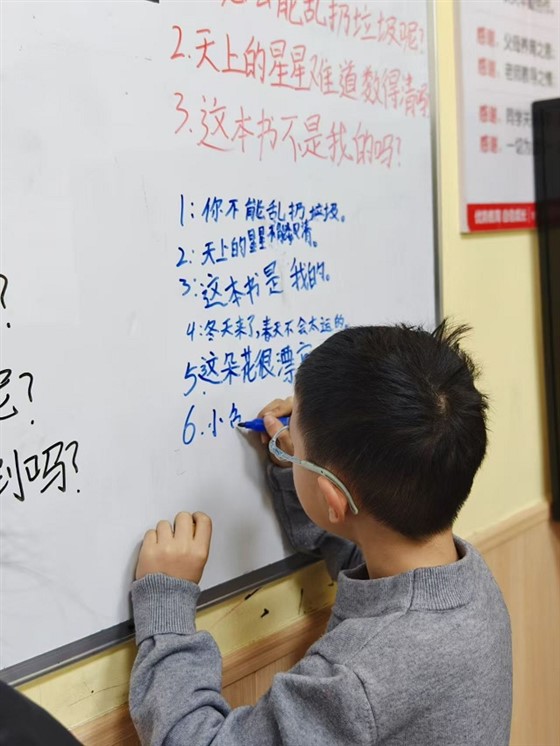 能乱扔垃圾呢?
2.天上的星星难道数得清吗
3.这本书不是我的吗?
1:你不能乱扔垃圾。
2:天上的星星
3:这本书是 我的。
4:冬天来了,春天不会太远的。
5这朵花很漂
6.小
?
呢?
到吗?
感谢,父母养育之恩
感谢,老师教导之
感谢,同学
感谢,一切